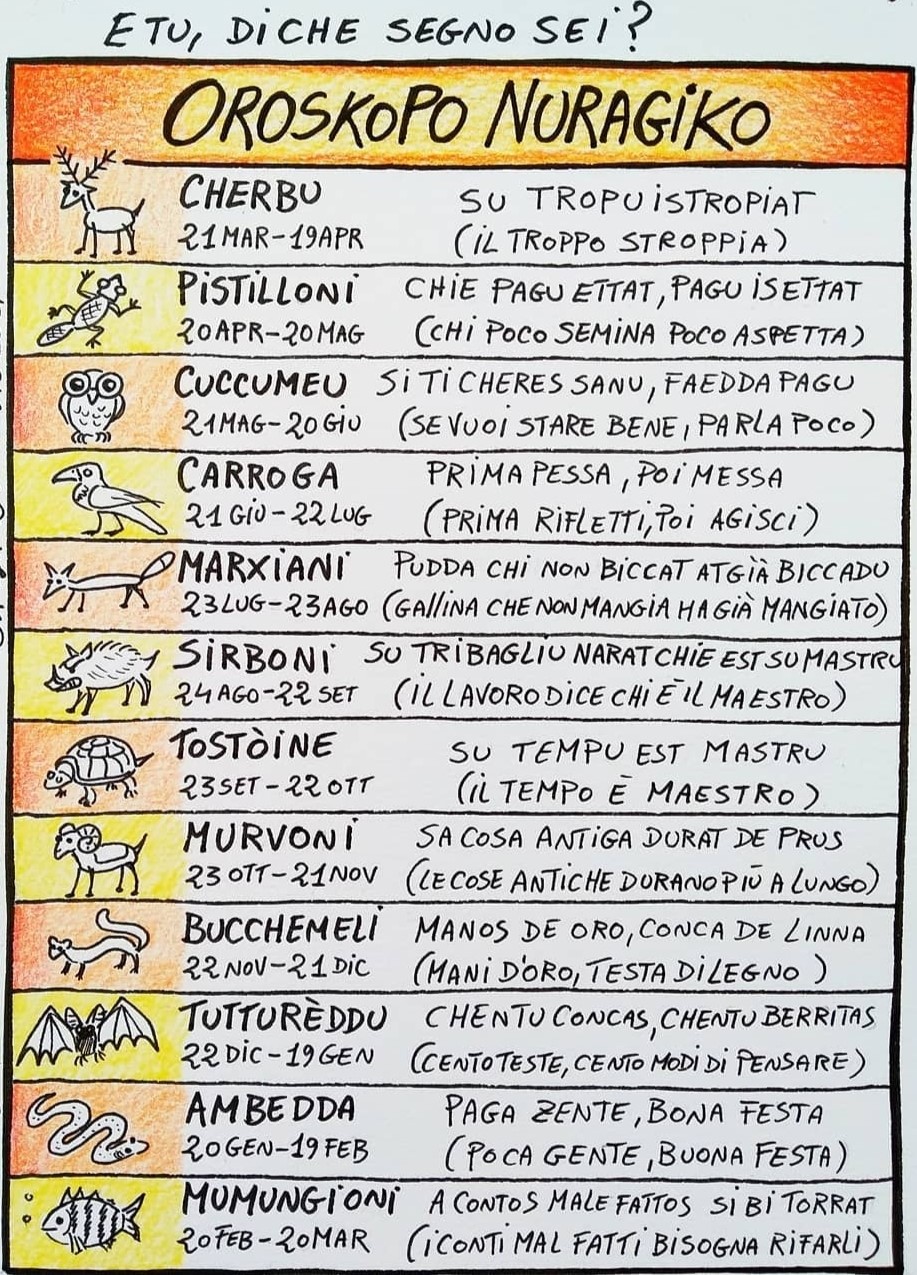 E TU, DI CHE SEGNO SEI?
OROSKOPO NURAGIKO
CHERBU SU TROPU ISTROPIAT
21 MAR-19 APR (IL TROPPO STROPPIA)
PISTILLONI CHIE PAGU ETTAT, PAGU ISETTAT
20 APR-20 MAG (CHI POCO SEMINA POCO ASPETTA)
CUCCUMEU SI TI CHERES SANU, FAEDDA PAGU
21 MAG-20 GIU (SE VUOI STARE BENE, PARLA POCO)
CARROGA PRIMA PESSA, POI MESSA
21 GIU-22 LUG (PRIMA RIFLETTI, POI AGISCI)
MARXIANI PUDDA CHI NON BICCAT AT GIÀ BICCADU
23 LUG-23 AGO (GALLINA CHE NON MANGIA HA GIÀ MANGIATO)
SIRBONI SU TRIBAGLIU NARAT CHIE EST SU MASTRU
24 AGO-22 SET (IL LAVORO DICE CHI È IL MAESTRO)
TOSTÒINE SU TEMPU EST MASTRU
23 SET-22 OTT (IL TEMPO È MAESTRO)
MURVONI SA COSA ANTIGA DURAT DE PRUS
23 OTT-21 NOV (LE COSE ANTICHE DURANO PIÙ A LUNGO)
BUCCHEMELI MANOS DE ORO, CONCA DE LINNA
22 NOV-21 DIC (MANI D'ORO, TESTA DI LEGNO)
TUTTURÈDDU CHENTU CONCAS, CHENTU BERRITAS
22 DIC-19 GEN (CENTO TESTE, CENTO MODI DI PENSARE)
AMBEDDA PAGA ZENTE, BONA FESTA
20 GEN-19 FEB (POCA GENTE, BUONA FESTA)
MUMUNGIONI A CONTOS MALE FATTOS SI BI TORRAT
20 FEB-20 MAR (I CONTI MAL FATTI BISOGNA RIFARLI)